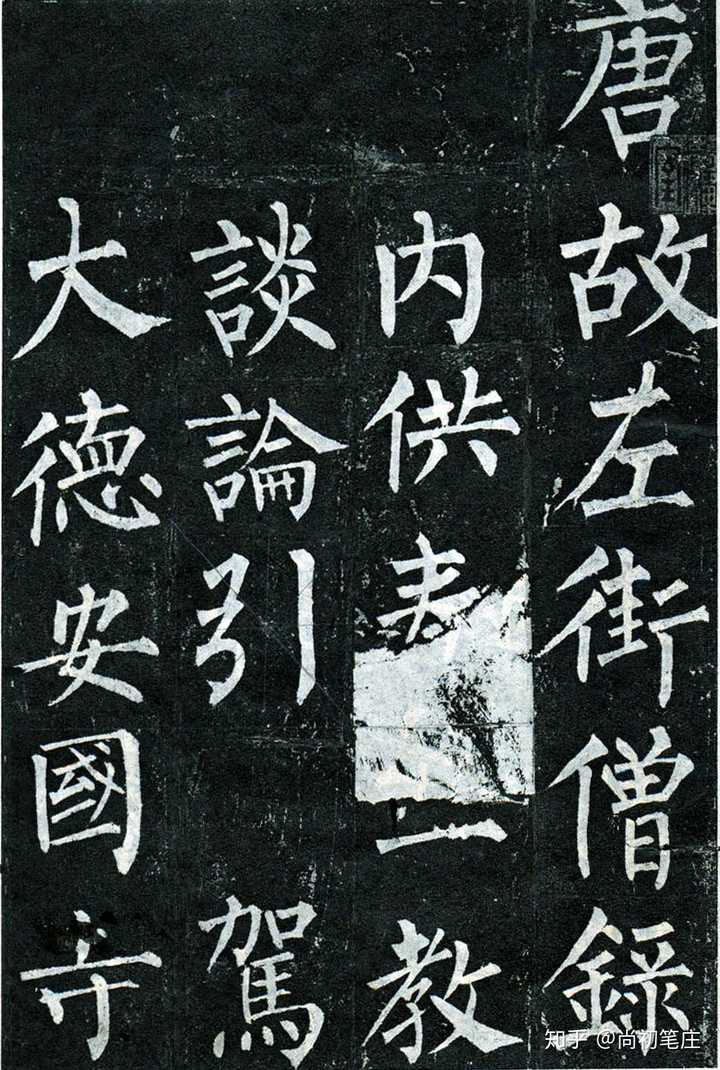 唐故左街僧錄
内供奉三教
談論引駕
大德安國寺
知乎 @尚初笔庄